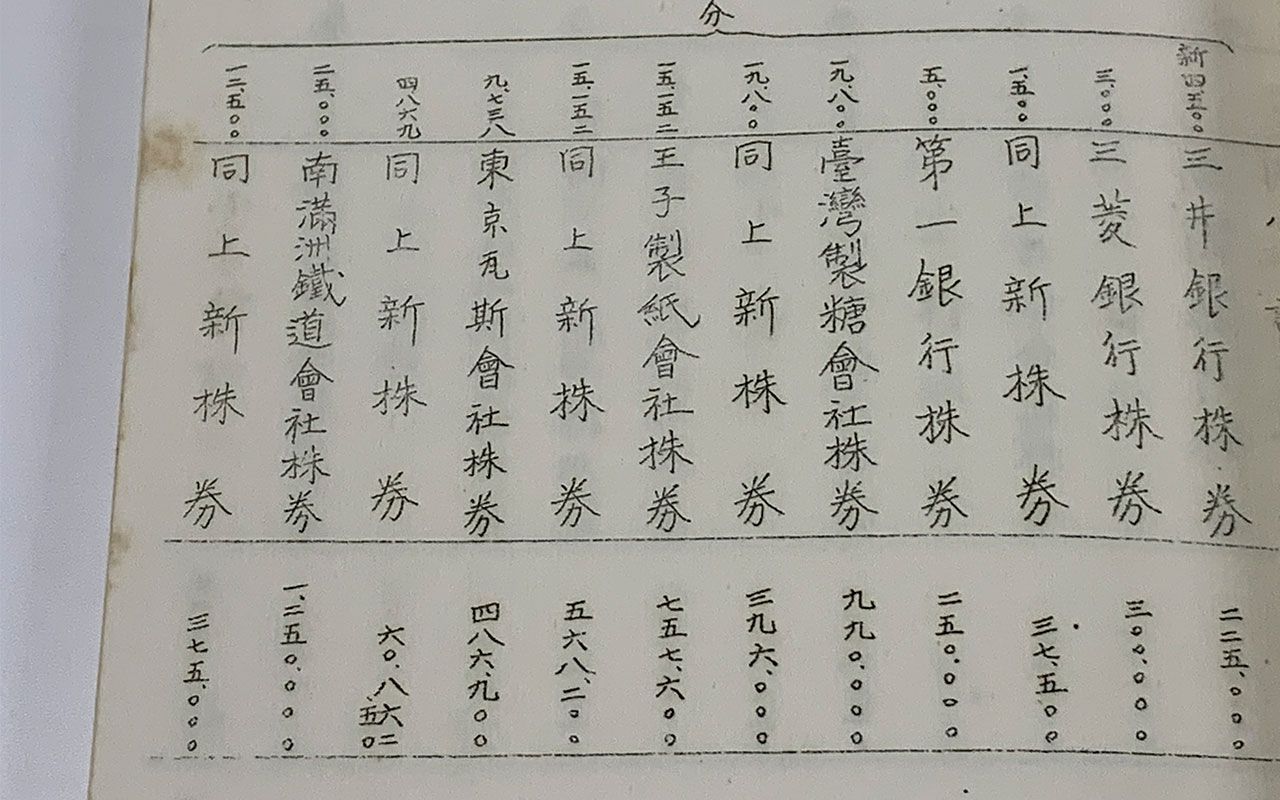 分
新四五〇〇
三井銀行株券
二二五、〇〇〇
三、〇〇〇
三菱銀行株券
三〇〇、〇〇〇
一、五〇〇
同上新株券
三七、五〇〇
五、〇〇〇
第一銀行株券
二五〇、〇〇〇
一九、八〇〇
臺灣製糖會社株券
九九〇、〇〇〇
一九、八〇〇
同上新株券
三九六、〇〇〇
一五、一五二
王子製紙會社株券
七五七、六〇〇
一五、一五二
同上新株券
五六八、二〇〇
九、七三八
東京瓦斯會社株券
四八六、九〇〇
四八六九
同上新株券
六〇、八六二、五〇
二五、〇〇〇
南滿洲鐵道會社株券
一、二五〇、〇〇〇
一二、五〇〇
同上新株券
三七五、〇〇〇